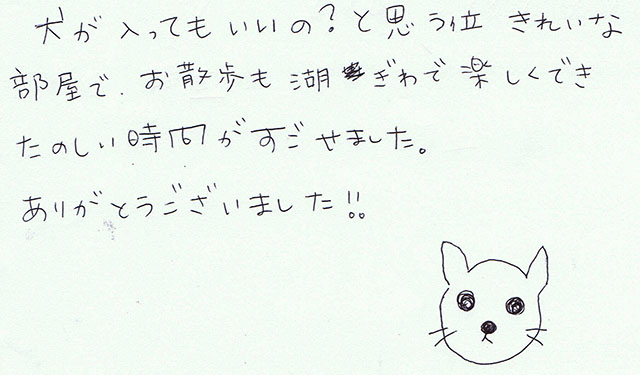 犬が入ってもいいの?と思う位 きれいな
部屋で、お散歩も湖ぎわで楽しくでき
たのしい時間がすごせました。
ありがとうございました!!